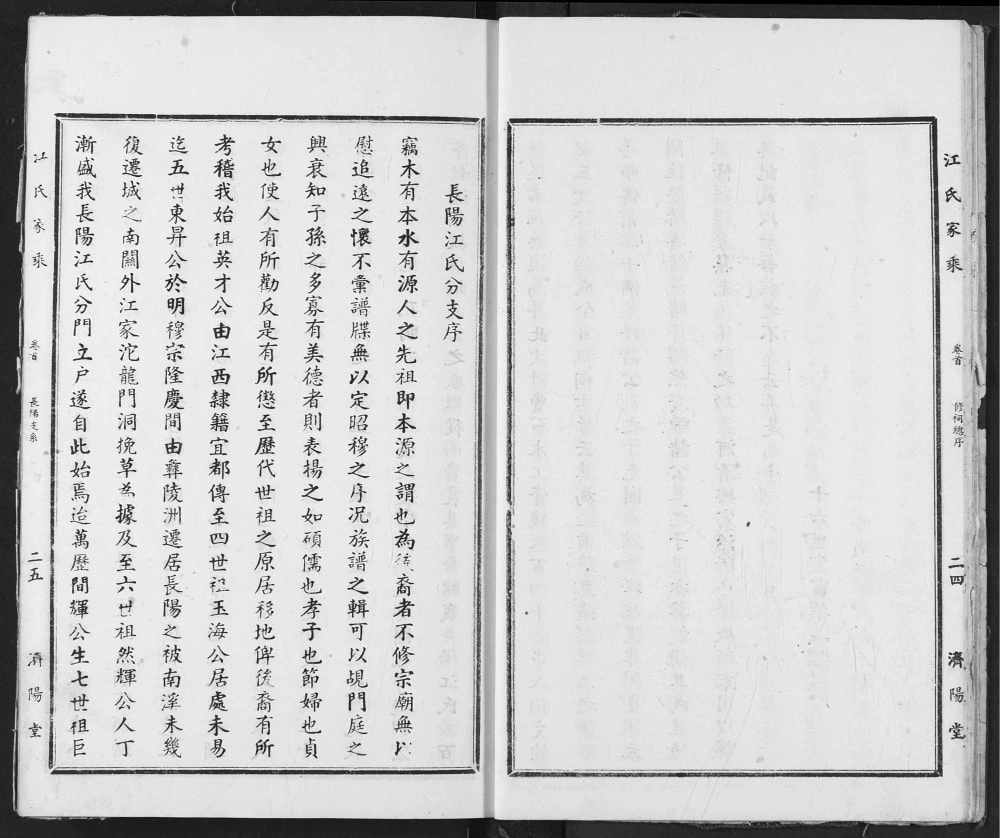 江氏家乘 卷首 修祠總序 二四 濟陽堂
長陽江氏分支序
竊木有本水有源人之先祖即本源之謂也為後裔者不修宗廟無以
慰追遠之懷不彙譜牒無以定昭穆之序况族譜之輯可以覘門庭之
興衰知子孫之多寡有美德者則表揚之如碩儒也孝子也節婦也貞
女也使人有所勸反是有所懲至歷代世祖之原居移地俾後裔有所
考稽我始祖英才公由江西隸籍宜都傳至四世祖玉海公居處未易
迄五世東昇公於明穆宗隆慶間由彝陵洲遷居長陽之被南溪未幾
復遷城之南關外江家沱龍門洞挽草為據及至六世祖然輝公人丁
漸盛我長陽江氏分門立户遂自此始焉迨萬歷間輝公生七世祖巨
江氏家乘 卷首 長陽支系 二五 濟陽堂